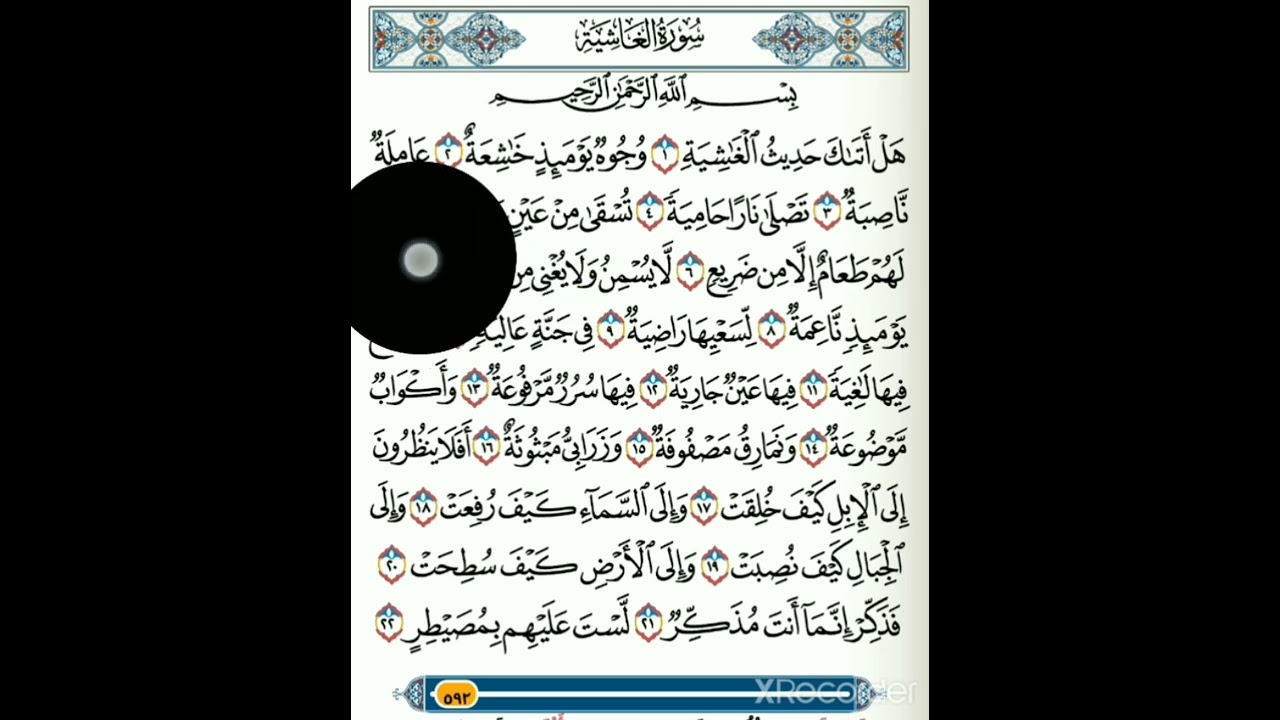 سُورَةُ الْغَاشِيَةِ
بِسْمِ اللَّهِ الرَّحْمَٰنِ الرَّحِيمِ
هَلْ أَتَىٰكَ حَدِيثُ ٱلْغَٰشِيَةِ ١ وُجُوهٌ يَوْمَئِذٍ خَٰشِعَةٌ ٢ عَامِلَةٌ
نَّاصِبَةٌ ٣ تَصْلَىٰ نَارًا حَامِيَةً ٤ تُسْقَىٰ مِنْ عَيْنٍ
لَهُمْ طَعَامٌ إِلَّا مِن ضَرِيعٍ ٦ لَّا يُسْمِنُ وَلَا يُغْنِى مِن
يَوْمَئِذٍ نَّاعِمَةٌ ٨ لِّسَعْيِهَا رَاضِيَةٌ ٩ فِى جَنَّةٍ عَالِيَةٍ
فِيهَا لَٰغِيَةً ١١ فِيهَا عَيْنٌ جَارِيَةٌ ١٢ فِيهَا سُرُرٌ مَّرْفُوعَةٌ ١٣ وَأَكْوَابٌ
مَّوْضُوعَةٌ ١٤ وَنَمَارِقُ مَصْفُوفَةٌ ١٥ وَزَرَابِىُّ مَبْثُوثَةٌ ١٦ أَفَلَا يَنظُرُونَ
إِلَى ٱلْإِبِلِ كَيْفَ خُلِقَتْ ١٧ وَإِلَى ٱلسَّمَآءِ كَيْفَ رُفِعَتْ ١٨ وَإِلَى
ٱلْجِبَالِ كَيْفَ نُصِبَتْ ١٩ وَإِلَى ٱلْأَرْضِ كَيْفَ سُطِحَتْ ٢٠
فَذَكِّرْ إِنَّمَآ أَنتَ مُذَكِّرٌ ٢١ لَّسْتَ عَلَيْهِم بِمُصَيْطِرٍ ٢٢
٥٩٢
XRecorder